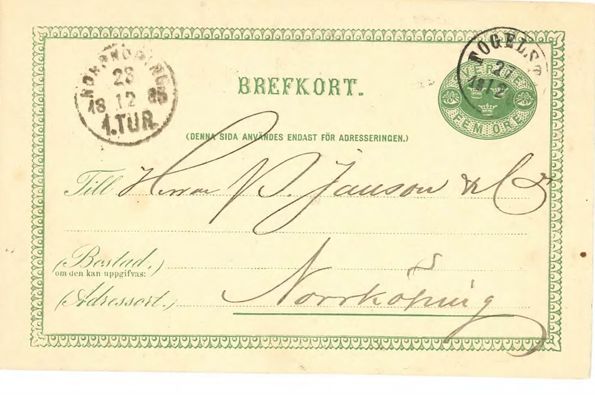 NORRKÖPING
23
18 12 85
1.TUR.
BREFKORT.
FOGELST
SVERIGE
FEM ÖRE
(DENNA SIDA ANVÄNDES ENDAST FÖR ADRESSERINGEN.)
Till Herrar P. Janson & Co
(Bostad.)
om den kan uppgifvas:
(Adressort.) Norrköping